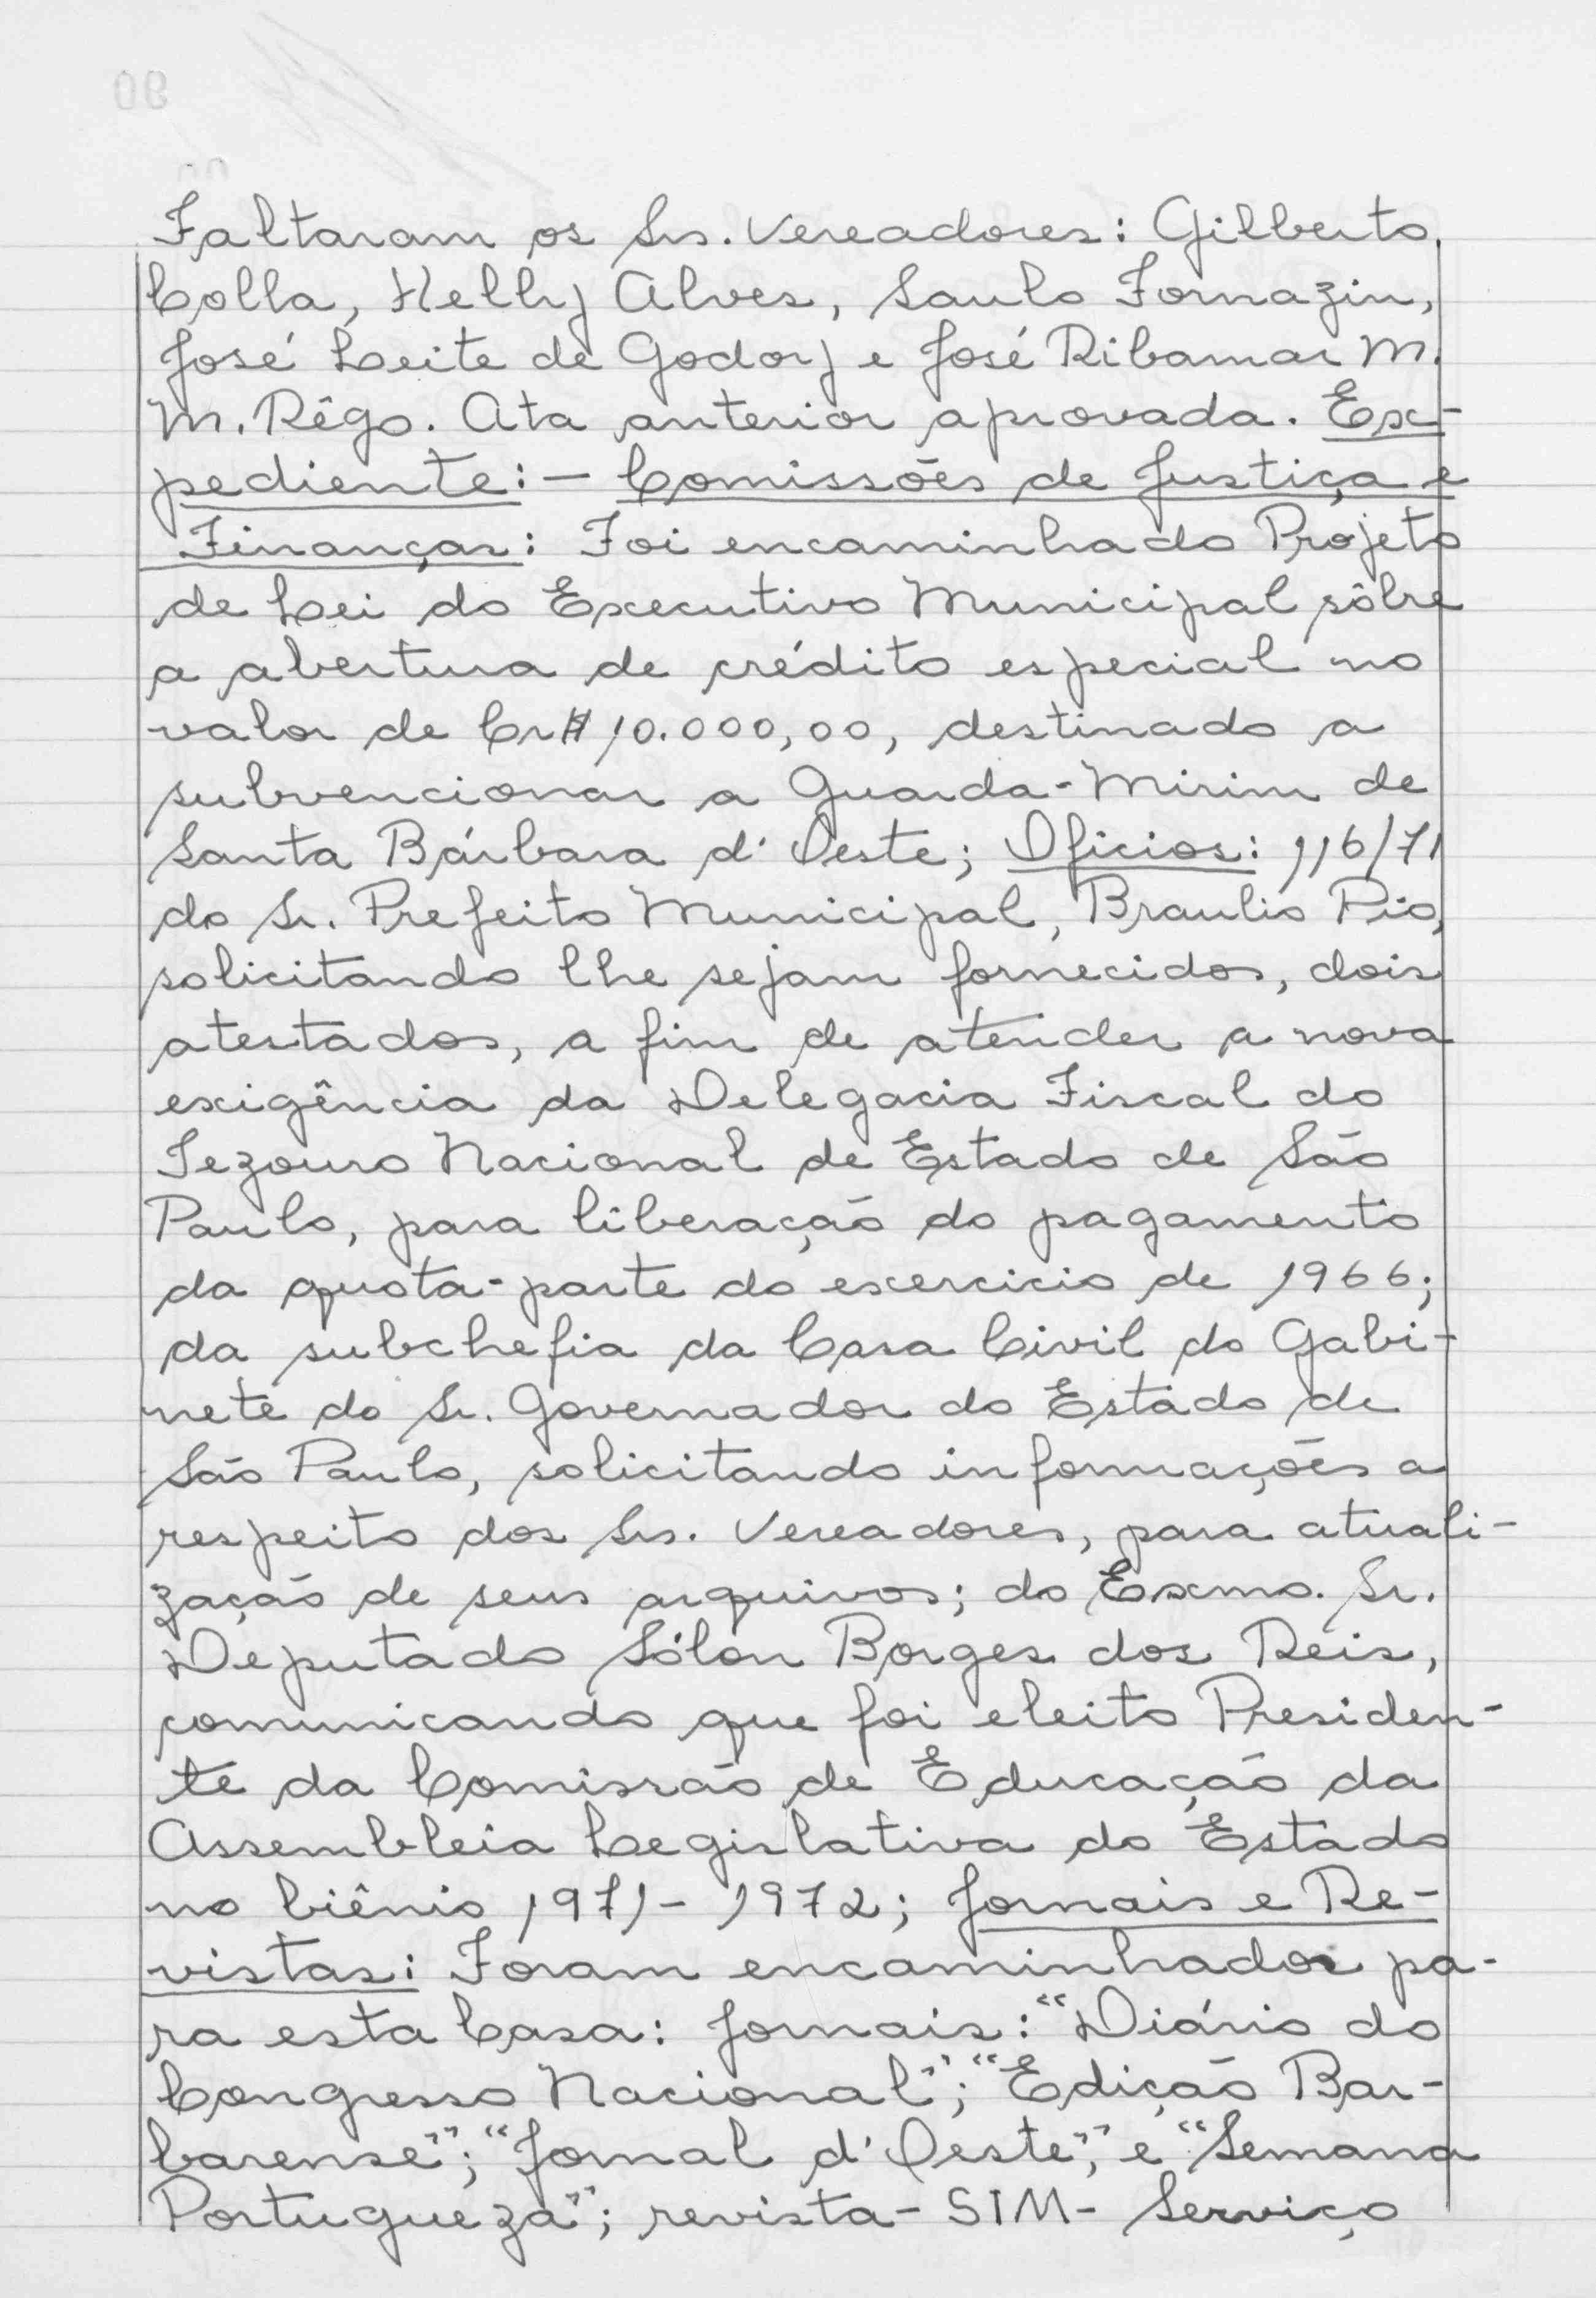 Faltaram os Srs. Vereadores: Gilberto
Colla, Helly Alves, Saulo Fornazin,
José Leite de Godoy e José Ribamar M.
M. Rêgo. Ata anterior aprovada. Ex-
pediente:- Comissões de Justiça e
Finanças: Foi encaminhado Projeto
de Lei do Executivo Municipal sôbre
a abertura de crédito especial no
valor de Cr$ 10.000,00, destinado a
subvencionar a Guarda-Mirim de
Santa Bárbara d'Oeste; Oficios: 116/71
do Sr. Prefeito Municipal, Braulio Pio,
solicitando lhe sejam fornecidos, dois
atestados, a fim de atender a nova
exigência da Delegacia Fiscal do
Tezouro Nacional de Estado de São
Paulo, para liberação do pagamento
da quota-parte do exercicio de 1966;
da subchefia da Casa Civil do Gabi-
nete do Sr. Governador do Estado de
São Paulo, solicitando informações a
respeito dos Srs. Vereadores, para atuali-
zação de seus arquivos; do Exmo. Sr.
Deputado Sólon Borges dos Reis,
comunicando que foi eleito Presiden-
te da Comissão de Educação da
Assembleia Legislativa do Estado
no biênio 1971-1972; Jornais e Re-
vistas: Foram encaminhados pa-
ra esta Casa: Jornais: "Diário do
Congresso Nacional"; "Edição Bar-
barense"; "Jornal d'Oeste", e "Semana
Portugueza"; revista - SIM - Serviço